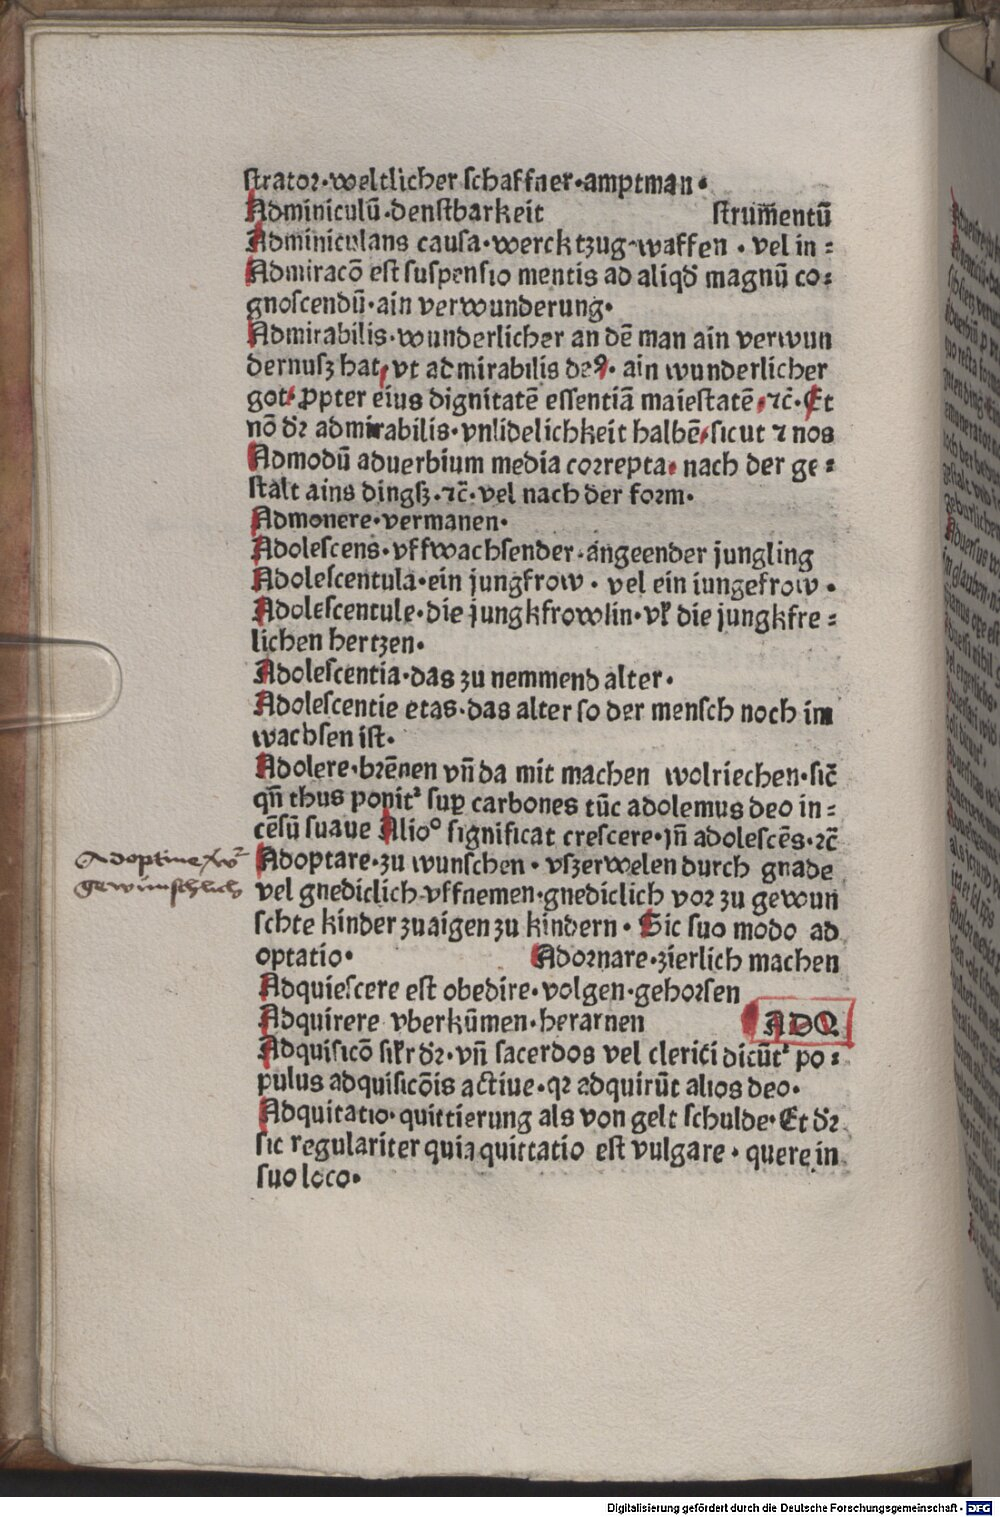 strator·weltlicher schaffner·amptman·
Adminiculū·denstbarkeit strum̄entū
Adminiculans causa·wercktzug·waffen·vel in⸗
Admiracō est suspensio mentis ad aliqd̄ magnū co⸗
gnoscendū·ain verwunderung·
Admirabilis·wunderlicher an dē man ain verwun
dernusz hat/vt admirabilis deꝰ·ain wunderlicher
got/ꝓpter eius dignitatē essentiā maiestatē/⁊c̄·Et
nō dꝛ̄ admirabilis·vnlidelichkeit halbē/sicut ⁊ nos
Admodū aduerbium media coꝛrepta·nach der ge⸗
stalt ains dingsz·⁊c̄·vel nach der foꝛm·
Admonere·vermanen·
Adolescens·vffwachsender·angeender jungling
Adolescentula·ein jungfrow·vel ein iungefrow·
Adolescentule·die jungkfrowlin·vł die jungkfre⸗
lichen hertzen·
Adolescentia·das zu nemmend alter·
Adolescentie etas·das alter so der mensch noch im
wachsen ist·
Adolere·bꝛēnen vn̄ da mit machen wolriechen·sic̄
qn̄ thus ponit᷑ suꝑ carbones tūc adolemus deo in⸗
cēsū suaue Alioº significat crescere·jn̄ adolescēs·⁊c̄
Adoptare·zu wunschen·vszerwelen durch gnade
vel gnediclich·vffnemen·gnediclich voꝛ zu gewun
schte kinder zuaigen zu kindern·Sic suo modo ad
optatio· Adoꝛnare·zierlich machen
Adquiescere est obedire·volgen·gehoꝛsen
Adquirere vberkūmen·herarnen ADQ
Adquisicō sił'r dꝛ̄·vn̄ sacerdos vel clerici dicūt᷑ po⸗
pulus adquisicōis actiue·qꝛ adquirūt alios deo·
Adquitatio·quittierung als von gelt schulde·Et dꝛ̄
sic regulariter quia quittatio est vulgare·quere in
suo loco·
gewünschlich